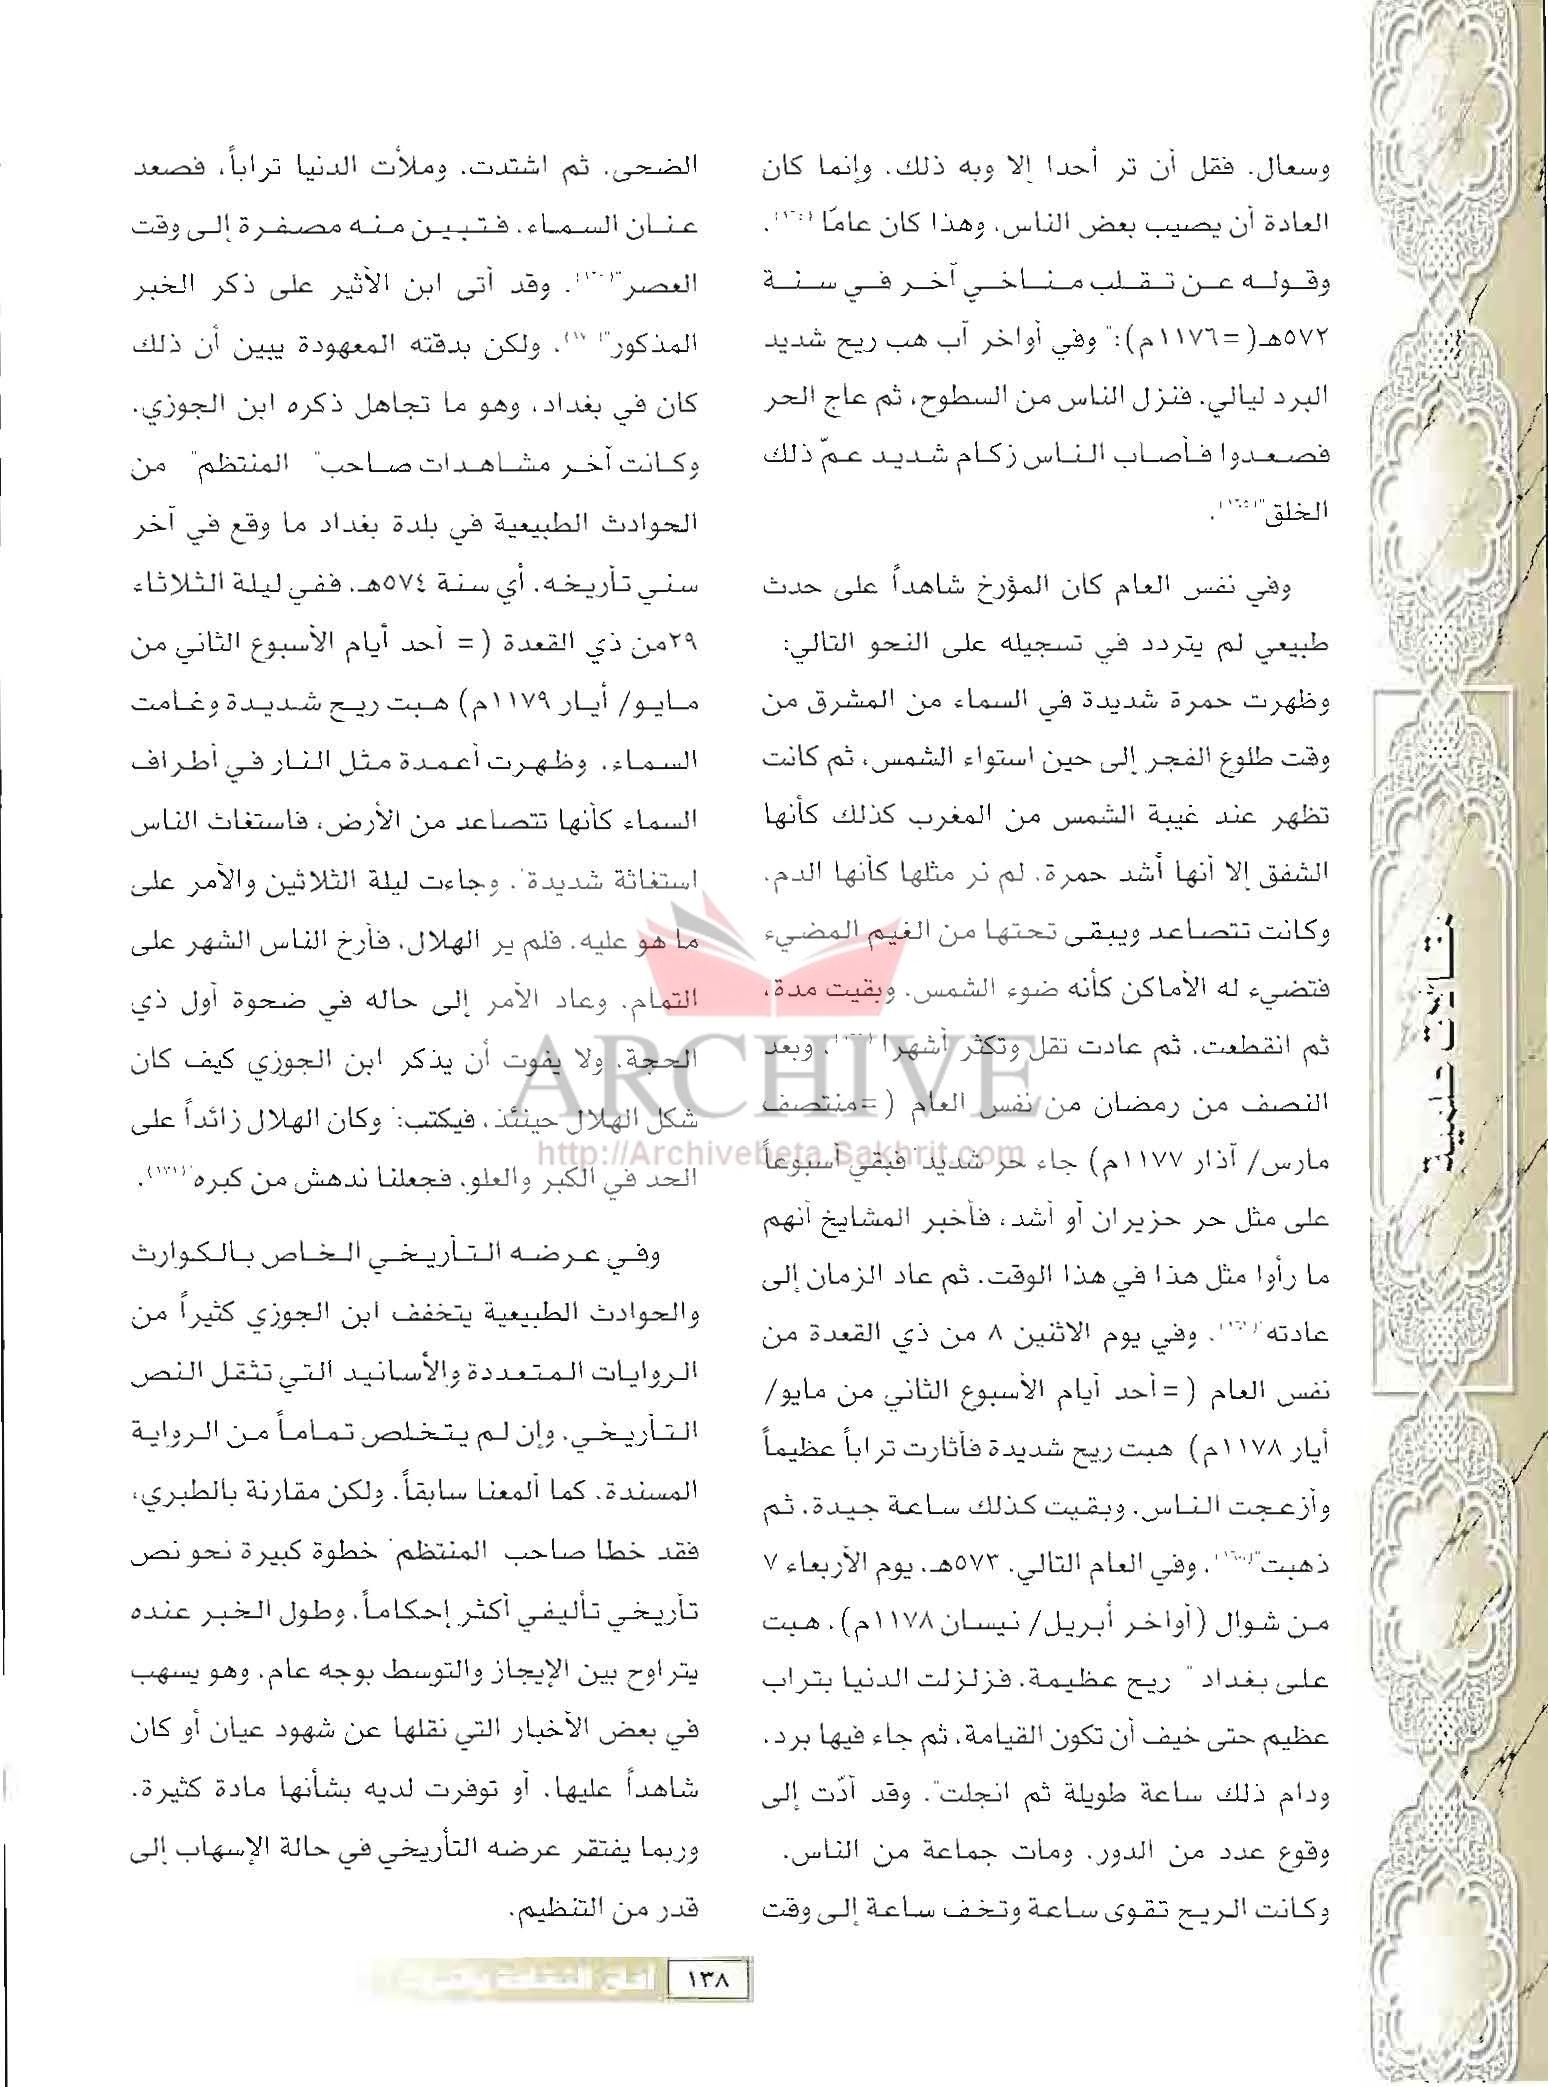 وسعال. فقل أن تر أحدا إلا وبه ذلك. وإنما كان
العادة أن يصيب بعض الناس، وهذا كان عاماً.
وقوله عن تقلب مناخي آخر في سنة
٥٧٢هـ(=١١٧٦م):" وفي أواخر آب هب ريح شديد
البرد ليالي. فنزل الناس من السطوح، ثم عاج الحر
فصعدوا فأصاب الناس زكام شديد عمّ ذلك
الخلق".
وفي نفس العام كان المؤرخ شاهداً على حدث
طبيعي لم يتردد في تسجيله على النحو التالي:
وظهرت حمرة شديدة في السماء من المشرق من
وقت طلوع الفجر إلى حين استواء الشمس، ثم كانت
تظهر عند غيبة الشمس من المغرب كذلك كأنها
الشفق إلا أنها أشد حمرة. لم نر مثلها كأنها الدم.
وكانت تتصاعد ويبقى تحتها من الغيم المضيء
فتضيء له الأماكن كأنه ضوء الشمس. وبقيت مدة،
ثم انقطعت. ثم عادت تقل وتكثر أشهرا. وبعد
النصف من رمضان من نفس العام (=منتصف
مارس/ آذار ١١٧٧م) جاء حر شديد فبقي أسبوعاً
على مثل حر حزيران أو أشد، فأخبر المشايخ أنهم
ما رأوا مثل هذا في هذا الوقت. ثم عاد الزمان إلى
عادته. وفي يوم الاثنين ٨ من ذي القعدة من
نفس العام (=أحد أيام الأسبوع الثاني من مايو/
أيار ١١٧٨م) هبت ريح شديدة فأثارت تراباً عظيماً
وأزعجت الناس. وبقيت كذلك ساعة جيدة. ثم
ذهبت". وفي العام التالي. ٥٧٣هـ. يوم الأربعاء ٧
من شوال (أواخر أبريل/ نيسان ١١٧٨م). هبت
على بغداد " ريح عظيمة. فزلزلت الدنيا بتراب
عظيم حتى خيف أن تكون القيامة. ثم جاء فيها برد.
ودام ذلك ساعة طويلة ثم انجلت". وقد أدّت إلى
وقوع عدد من الدور. ومات جماعة من الناس.
وكانت الريح تقوى ساعة وتخف ساعة إلى وقت
الضحى. ثم اشتدت. وملأت الدنيا تراباً، فصعد
عنان السماء. فتبين منه مصفرة إلى وقت
العصر". وقد أتى ابن الأثير على ذكر الخبر
المذكور". ولكن بدقته المعهودة يبين أن ذلك
كان في بغداد، وهو ما تجاهل ذكره ابن الجوزي.
وكانت آخر مشاهدات صاحب" المنتظم" من
الحوادث الطبيعية في بلدة بغداد ما وقع في آخر
سني تأريخه. أي سنة ٥٧٤هـ. ففي ليلة الثلاثاء
٢٩من ذي القعدة (= أحد أيام الأسبوع الثاني من
مايو/ أيار ١١٧٩م) هبت ريح شديدة وغامت
السماء. وظهرت أعمدة مثل النار في أطراف
السماء كأنها تتصاعد من الأرض، فاستغاث الناس
استغاثة شديدة". وجاءت ليلة الثلاثين والأمر على
ما هو عليه. فلم ير الهلال. فأرخ الناس الشهر على
التمام. وعاد الأمر إلى حاله في ضحوة أول ذي
الحجة. ولا يفوت أن يذكر ابن الجوزي كيف كان
شكل الهلال حينئذ. فيكتب:" وكان الهلال زائداً على
الحد في الكبر والعلو. فجعلنا ندهش من كبره"(١٧١).
وفي عرضه التأريخي الخاص بالكوارث
والحوادث الطبيعية يتخفف ابن الجوزي كثيراً من
الروايات المتعددة والأسانيد التي تثقل النص
التأريخي. وإن لم يتخلص تماماً من الرواية
المسندة. كما ألمعنا سابقاً. ولكن مقارنة بالطبري،
فقد خطا صاحب المنتظم" خطوة كبيرة نحو نص
تأريخي تأليفي أكثر إحكاماً. وطول الخبر عنده
يتراوح بين الإيجاز والتوسط بوجه عام. وهو يسهب
في بعض الأخبار التي نقلها عن شهود عيان أو كان
شاهداً عليها. أو توفرت لديه بشأنها مادة كثيرة.
وربما يفتقر عرضه التأريخي في حالة الإسهاب إلى
قدر من التنظيم.
ARCHIVE
http://Archivebeta.Sakhrit.com
١٣٨